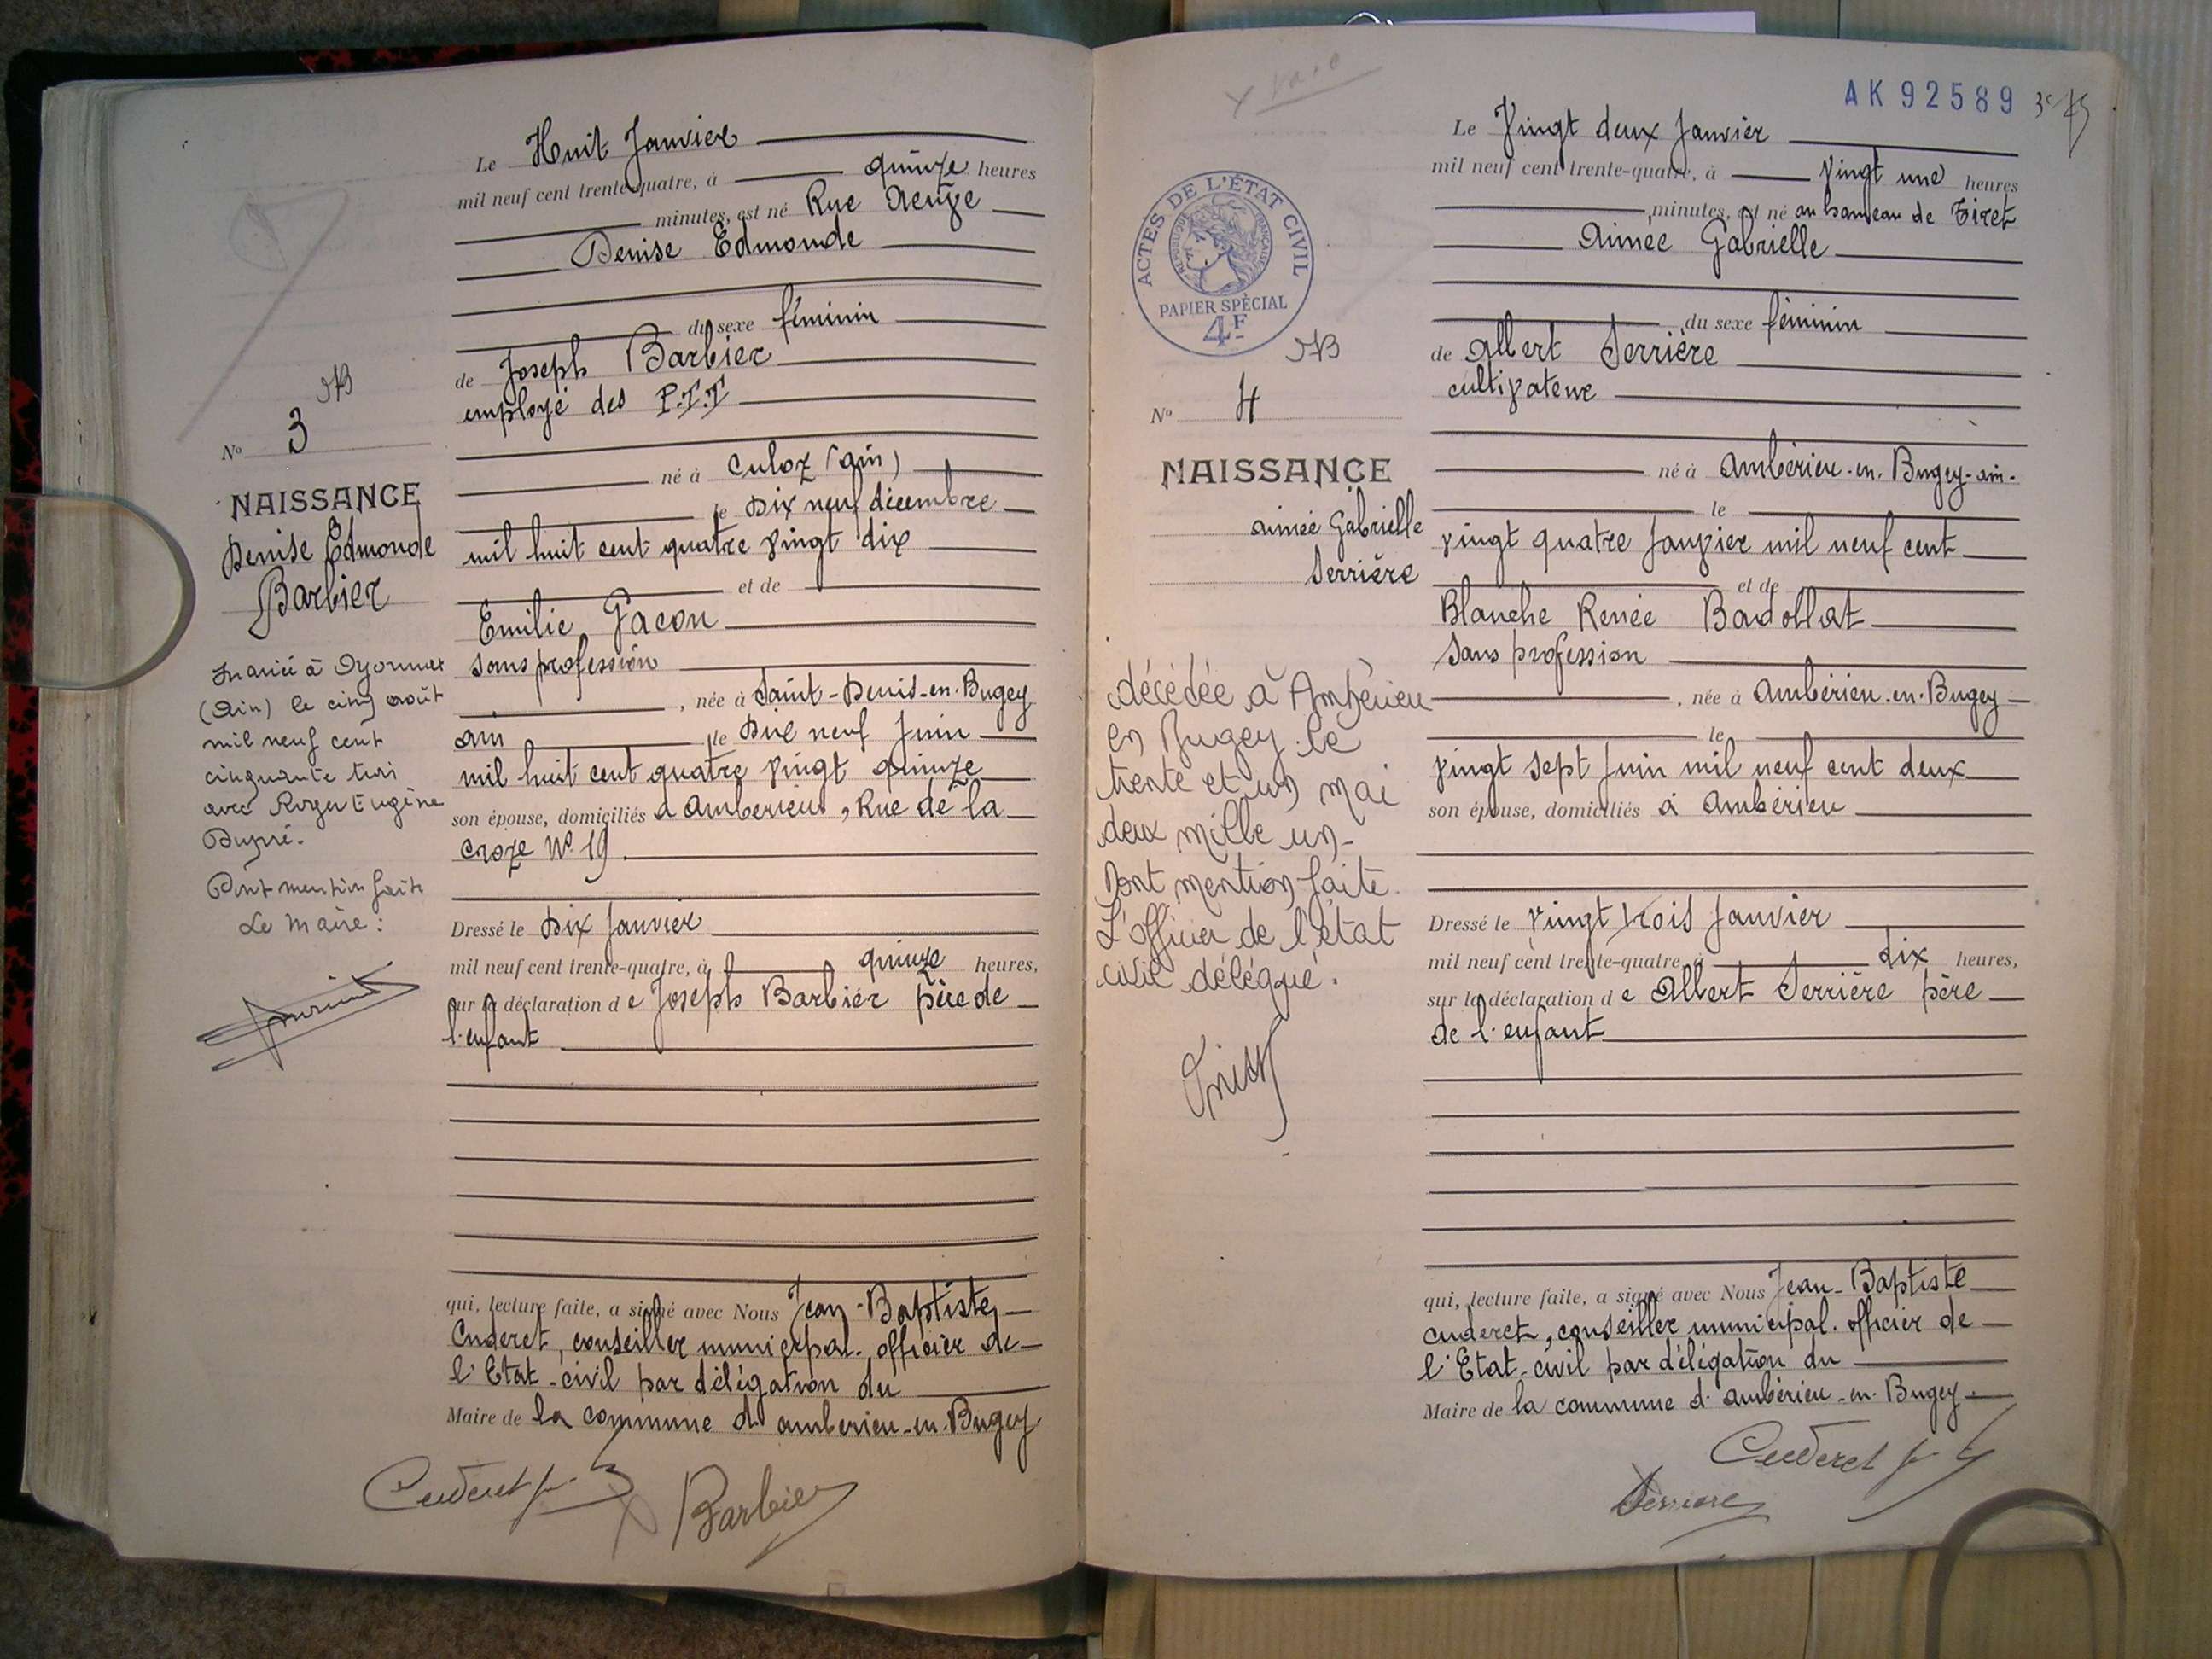 Le Huit Janvier
mil neuf cent trente-quatre, à quinze heures
minutes, est né Rue
Denise Edmonde
du sexe féminin
de Joseph Barbier
employé des P.T.T
né à Culoz (ain)
le Dix neuf décembre
mil huit cent quatre vingt dix
et de
Emilie Gacon
sans profession
, née à Saint-Denis-en-Bugey
ain le Dix neuf Juin
mil huit cent quatre vingt quinze
son épouse, domiciliés à Amberieu, Rue de la
Croze No 19.
Dressé le Dix Janvier
mil neuf cent trente-quatre, à quinze heures,
sur la déclaration de Joseph Barbier père de
l'enfant
qui, lecture faite, a signé avec Nous Jean-Baptiste
Cuderet, conseiller municipal. officier de
l'Etat-civil par délégation du
Maire de la commune d'amberieu-en-Bugey
Cuderet
Barbier
No 3
NAISSANCE
Denise Edmonde
Barbier
mariée à Oyonnax
(Ain) le cinq août
mil neuf cent
cinquante trois
avec Roger Eugène
Dupré.
Dont mention faite
Le Maire :
AK 92589
ACTES DE L'ÉTAT CIVIL
RÉPUBLIQUE FRANÇAISE
PAPIER SPÉCIAL
4F
No 4
NAISSANCE
aimée Gabrielle
Serrière
décédée à Ambérieu
en Bugey le
trente et un mai
deux mille un-
Dont mention faite.
L'officier de l'état
civil délégué.
Le Vingt deux Janvier
mil neuf cent trente-quatre, à Vingt une heures
minutes, est né au hameau de Tiret
Aimée Gabrielle
du sexe féminin
de Albert Serrière
cultivateur
né à Ambérieu-en-Bugey-ain-
le
vingt quatre Janvier mil neuf cent
et de
Blanche Renée Badollat
Sans profession
, née à Ambérieu-en-Bugey
le
vingt sept Juin mil neuf cent deux
son épouse, domiciliés à Ambérieu
Dressé le Vingt trois Janvier
mil neuf cent trente-quatre, à dix heures,
sur la déclaration de Albert Serrière père
de l'enfant
qui, lecture faite, a signé avec Nous Jean-Baptiste
Cuderet, conseiller municipal. officier de
l'Etat-civil par délégation du
Maire de la commune d'ambérieu-en-Bugey
Cuderet
Serriere